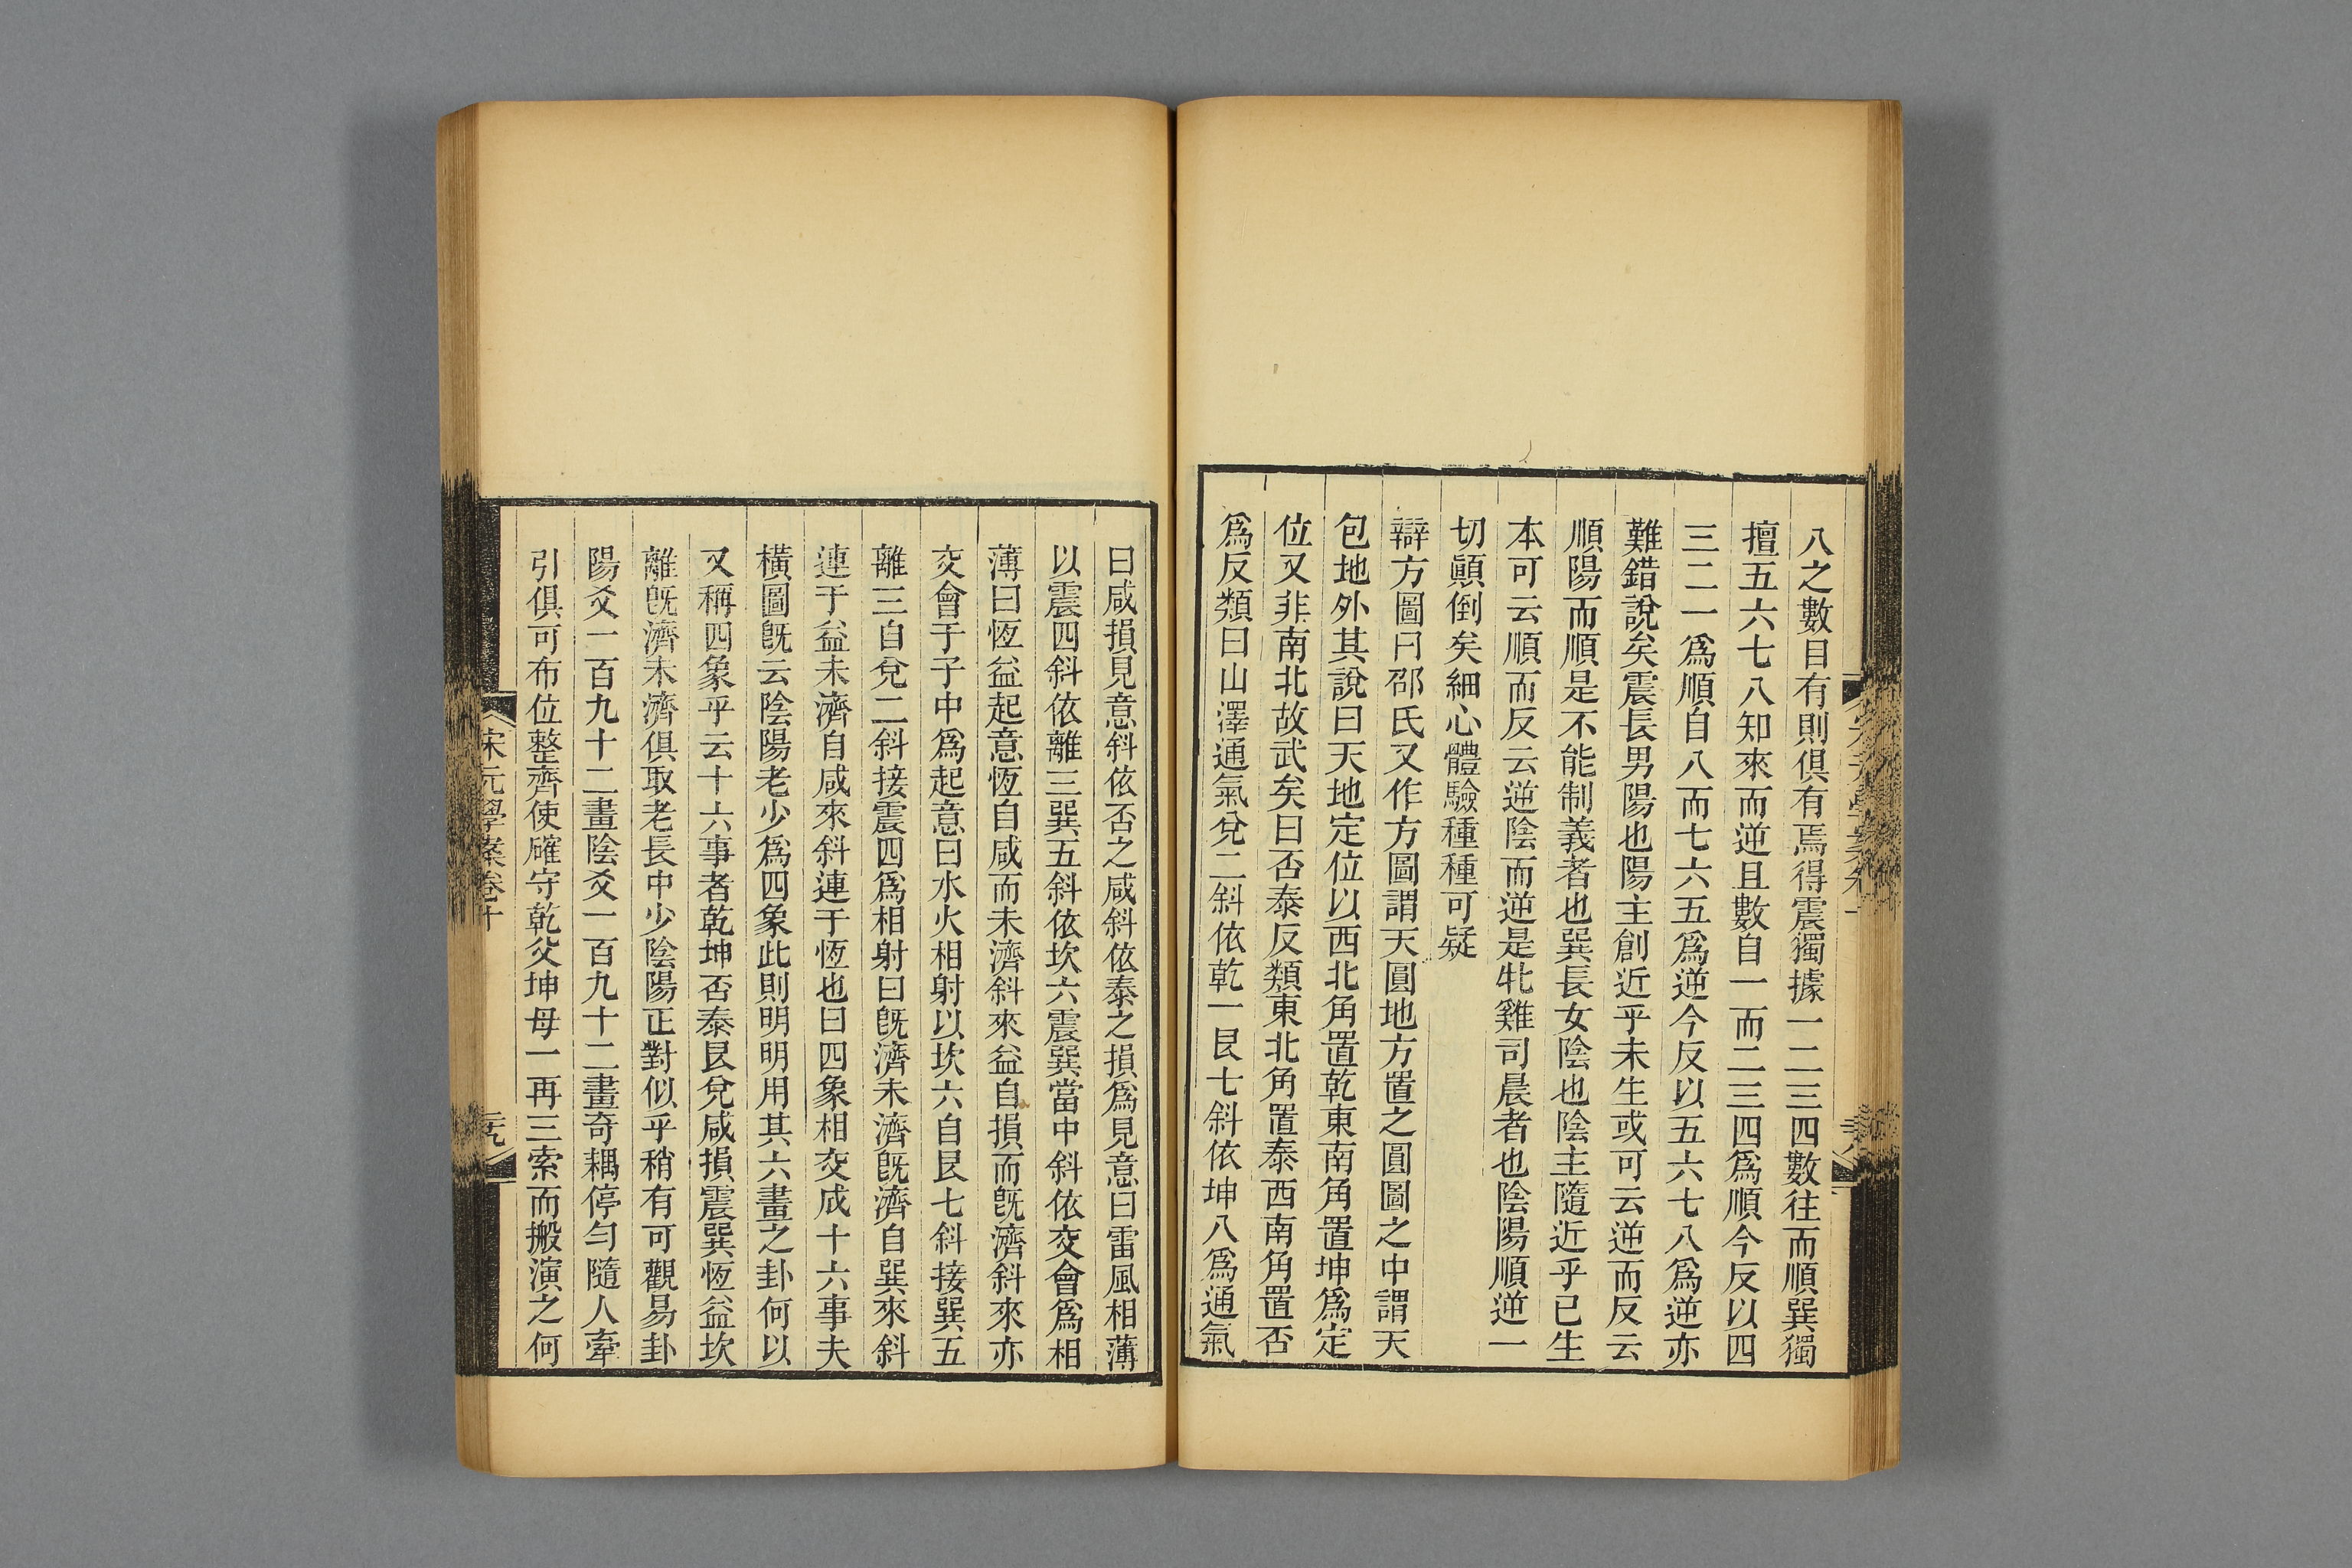 八之數目有則俱有焉得震獨據一二三四數往而順巽獨
擅五六七八知來而逆且數自一而二三四爲順今反以四
三二一爲順自八而七六五爲逆今反以五六七八爲逆亦
難錯說矣震長男陽也陽主創近乎未生或可云逆而反云
順陽而順是不能制義者也巽長女陰也陰主隨近乎已生
本可云順而反云逆陰而逆是牝雞司晨者也陰陽順逆一
切顚倒矣細心體驗種種可疑
辯方圖曰邵氏又作方圖謂天圓地方置之圓圖之中謂天
包地外其說曰天地定位以西北角置乾東南角置坤爲定
位又非南北故武矣曰否泰反類東北角置泰西南角置否
爲反類曰山澤通氣兌二斜依乾一艮七斜依坤八爲通氣
曰咸損見意斜依否之咸斜依泰之損爲見意曰雷風相薄
以震四斜依離三巽五斜依坎六震巽當中斜依交會爲相
薄曰恆益起意恆自咸而未濟斜來益自損而旣濟斜來亦
交會于子中爲起意曰水火相射以坎六自艮七斜接巽五
離三自兌二斜接震四爲相射曰旣濟未濟旣濟自巽來斜
連于益未濟自咸來斜連于恆也曰四象相交成十六事夫
橫圖旣云陰陽老少爲四象此則明明用其六畫之卦何以
又稱四象乎云十六事者乾坤否泰艮兌咸損震巽恆益坎
離旣濟未濟俱取老長中少陰陽正對似乎稍有可觀易卦
陽爻一百九十二畫陰爻一百九十二畫奇耦停勻隨人牽
引俱可布位整齊使確守乾父坤母一再三索而搬演之何
宋元學案卷十